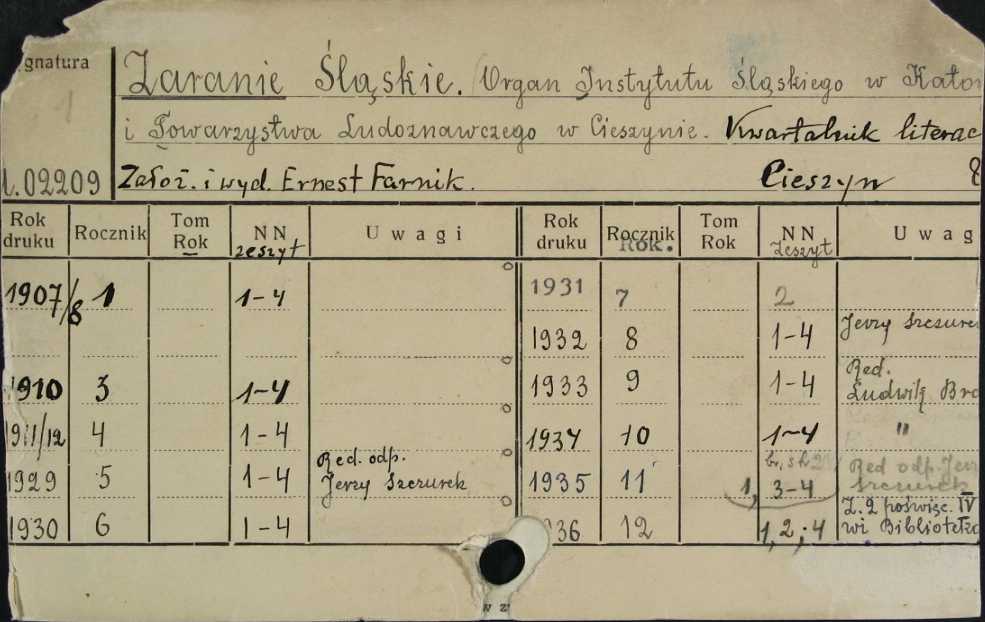 gnatura
1
Zaranie Śląskie. (Organ Instytutu Śląskiego w Kato
i Towarzystwa Ludoznawczego w Cieszynie. Kwartalnik literac
1.02209 Założ. i wyd. Ernest Farnik. Cieszyn 8
Rok druku Rocznik Tom Rok NN zeszyt Uwagi Rok druku Rocznik Rok. Tom Rok NN Zeszyt Uwag
1907/8 1 1-4 1931 7 2
1932 8 1-4 Jerzy Szczurek
1910 3 1-4 1933 9 1-4 Red. Ludwik Bro
1911/12 4 1-4 1934 10 1-4 "
1929 5 1-4 Red. odp. Jerzy Szczurek 1935 11 1, 3-4 Red odp. Jerzy Szczurek
1930 6 1-4 936 12 1,2,4 Z. 2 poświęc. IV
wi Bibliotek
w z